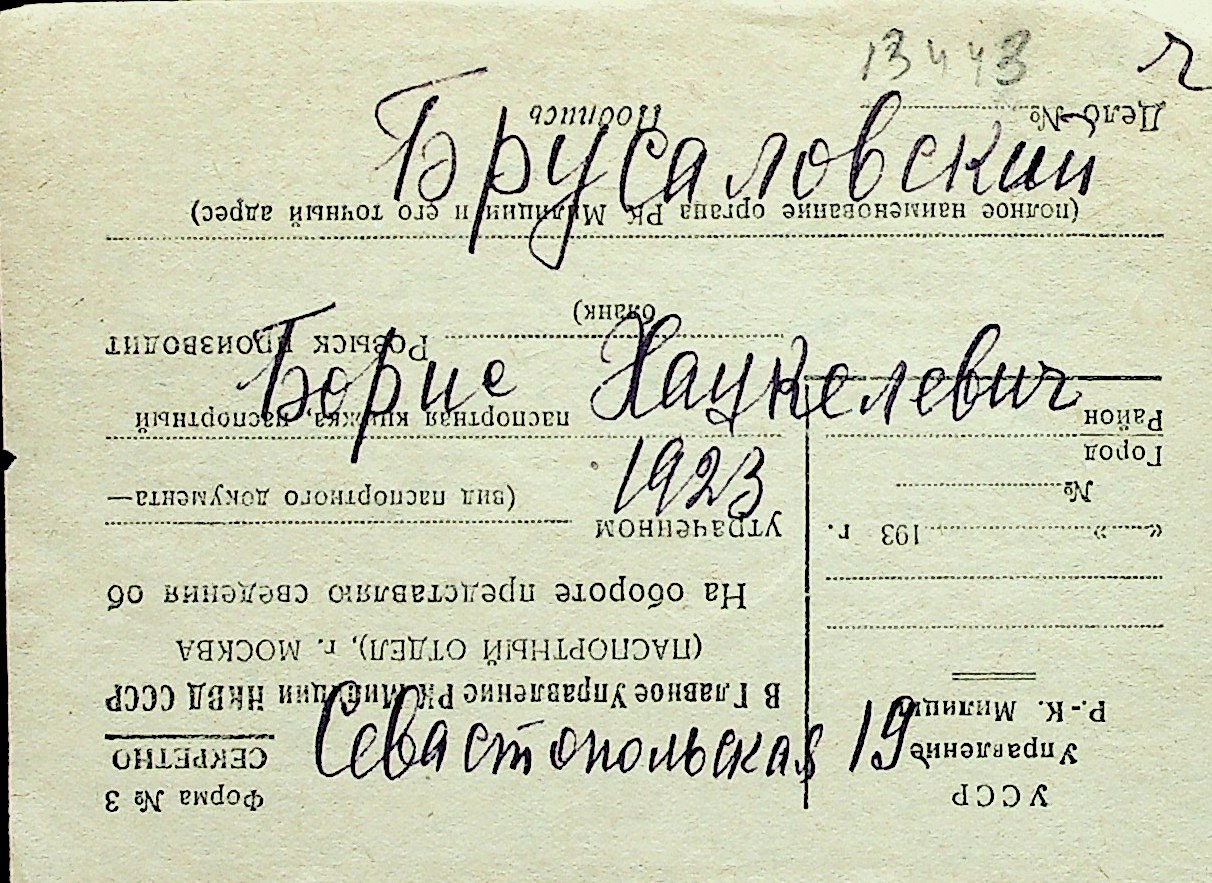 13443 ч
Брусаловский
Борис Хацкелевич
1923
Севастопольская 19
УССР
Управление
Р.-К. Милиции
« » 193 г.
№
Город
Район
Форма № 3
СЕКРЕТНО
В Главное Управление РК Милиции НКВД СССР
(ПАСПОРТНЫЙ ОТДЕЛ), г. МОСКВА
На обороте представляю сведения об
утраченном
(вид паспортного документа—
паспортная книжка, паспортный
бланк)
Розыск производит
(полное наименование органа РК Милиции и его точный адрес)
Дело № Подпись